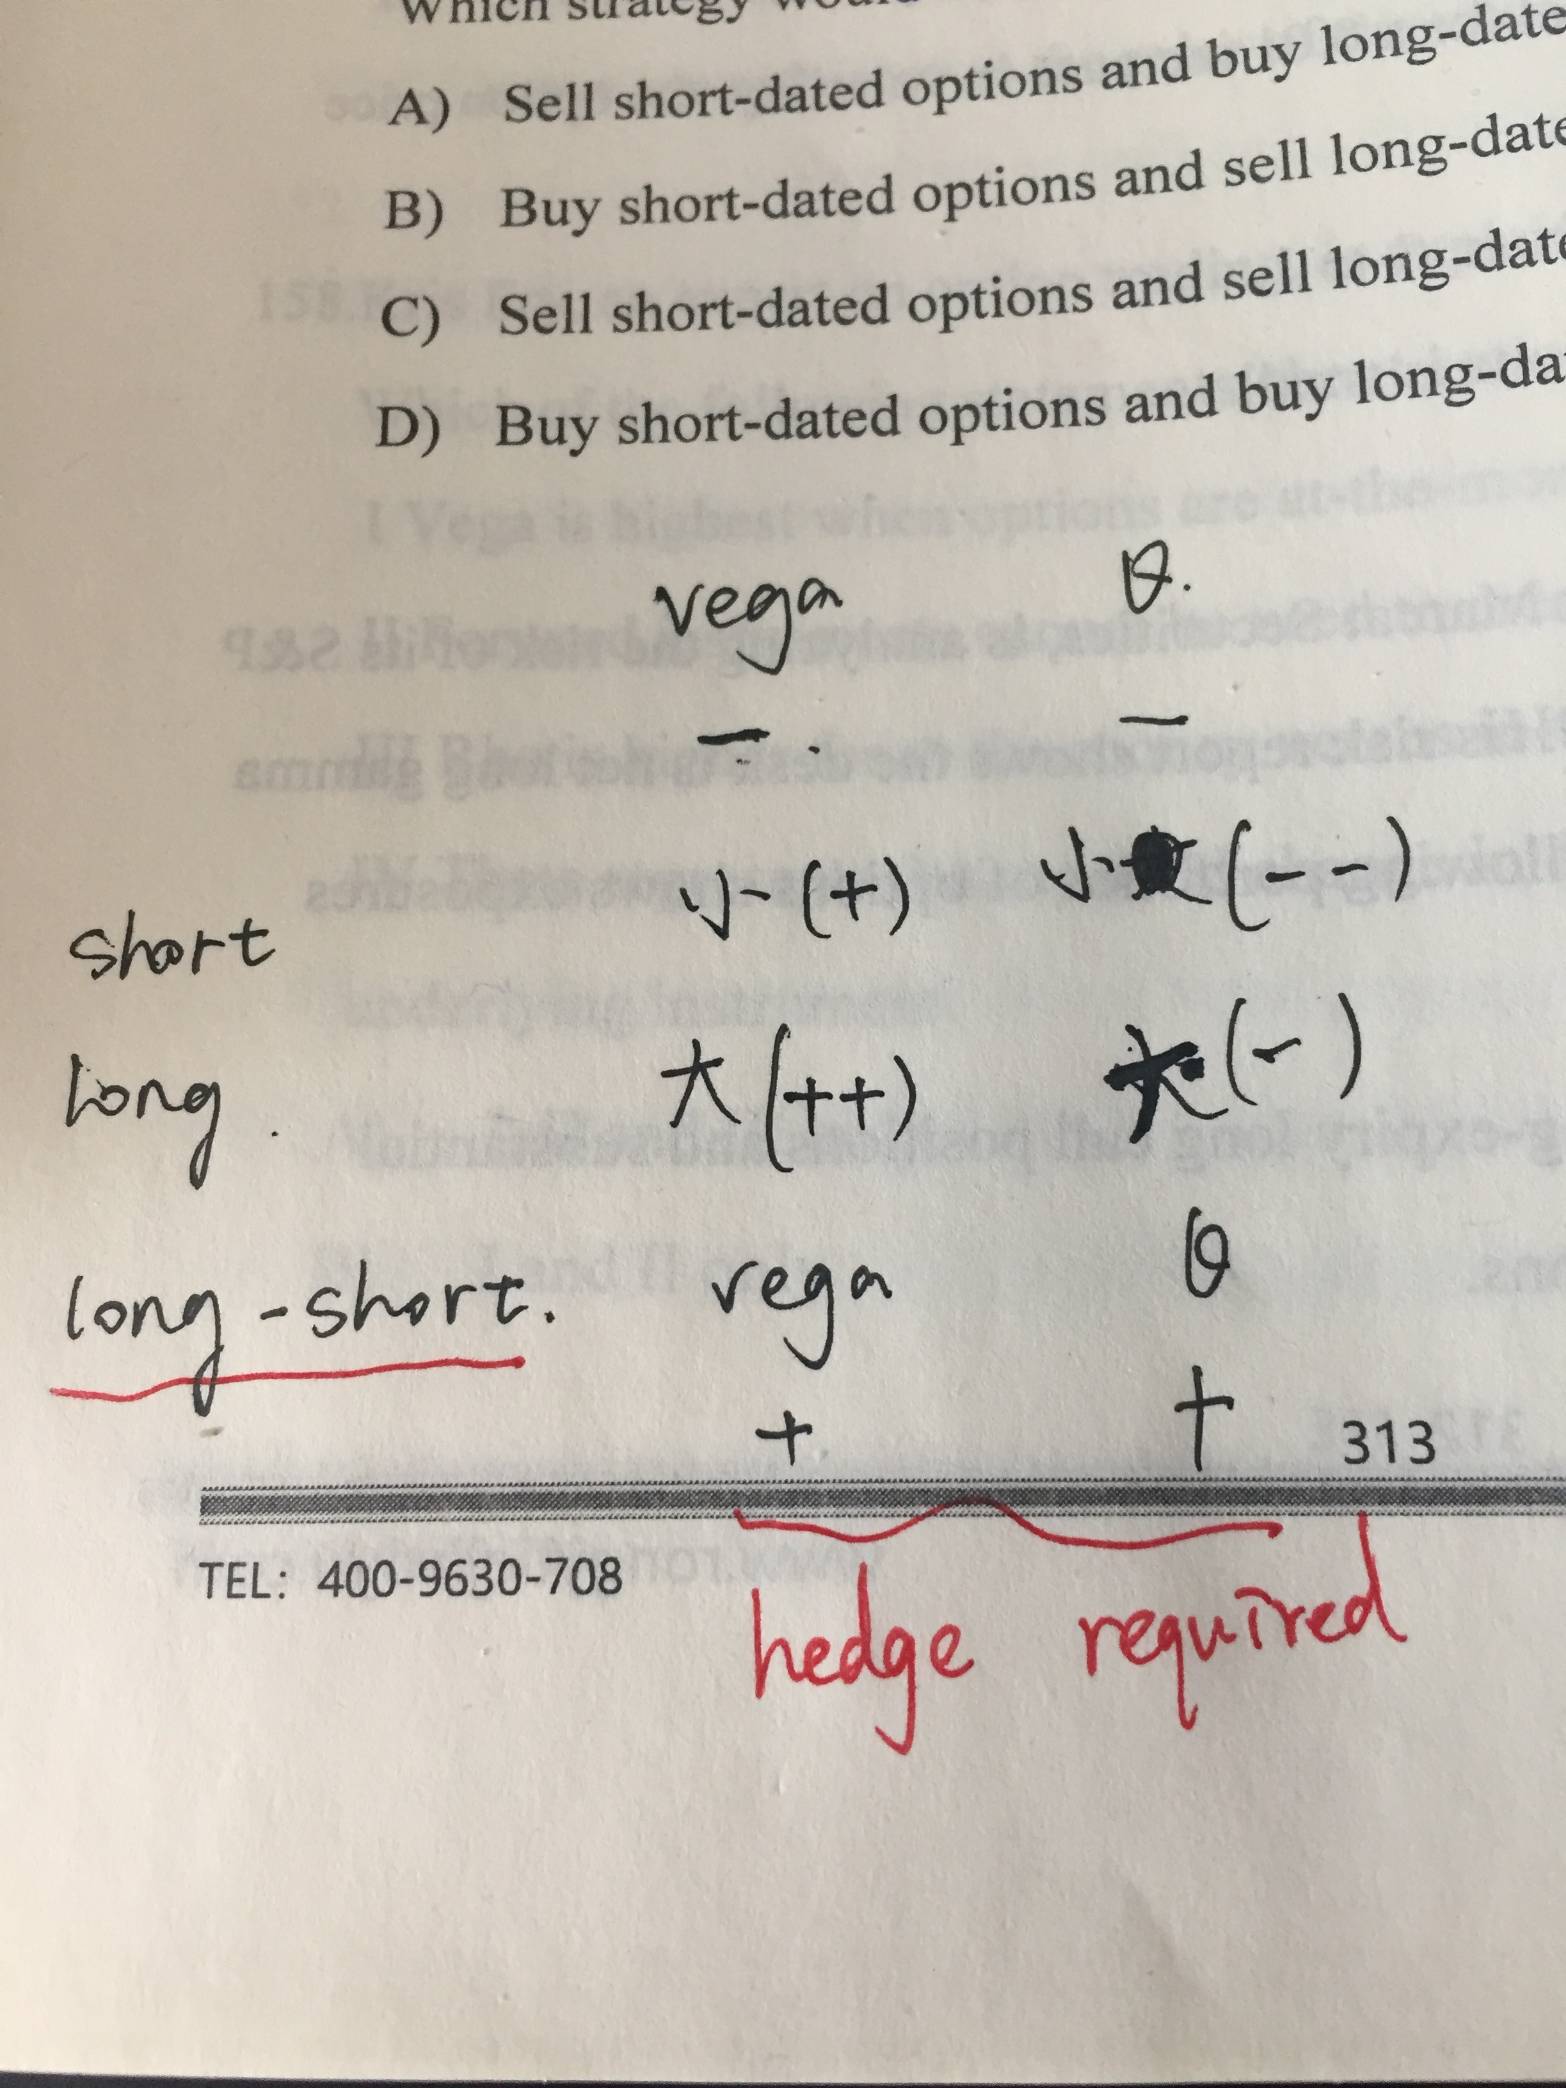 Which strategy would
A) Sell short-dated options and buy long-date
B) Buy short-dated options and sell long-date
C) Sell short-dated options and sell long-date
D) Buy short-dated options and buy long-da
vega θ.
— . —
小 (+) 小 (--)
short
long. 大 (++) 大 (-)
long-short. vega θ
+ +
313
TEL: 400-9630-708
hedge required